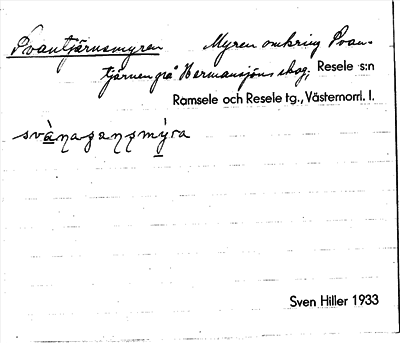 Svantjärnsmyren Myren omkring Svan-
tjärnen på Hermansjöns skog, Resele s:n
Ramsele och Resele tg., Västernorrl. l.
Sven Hiller 1933